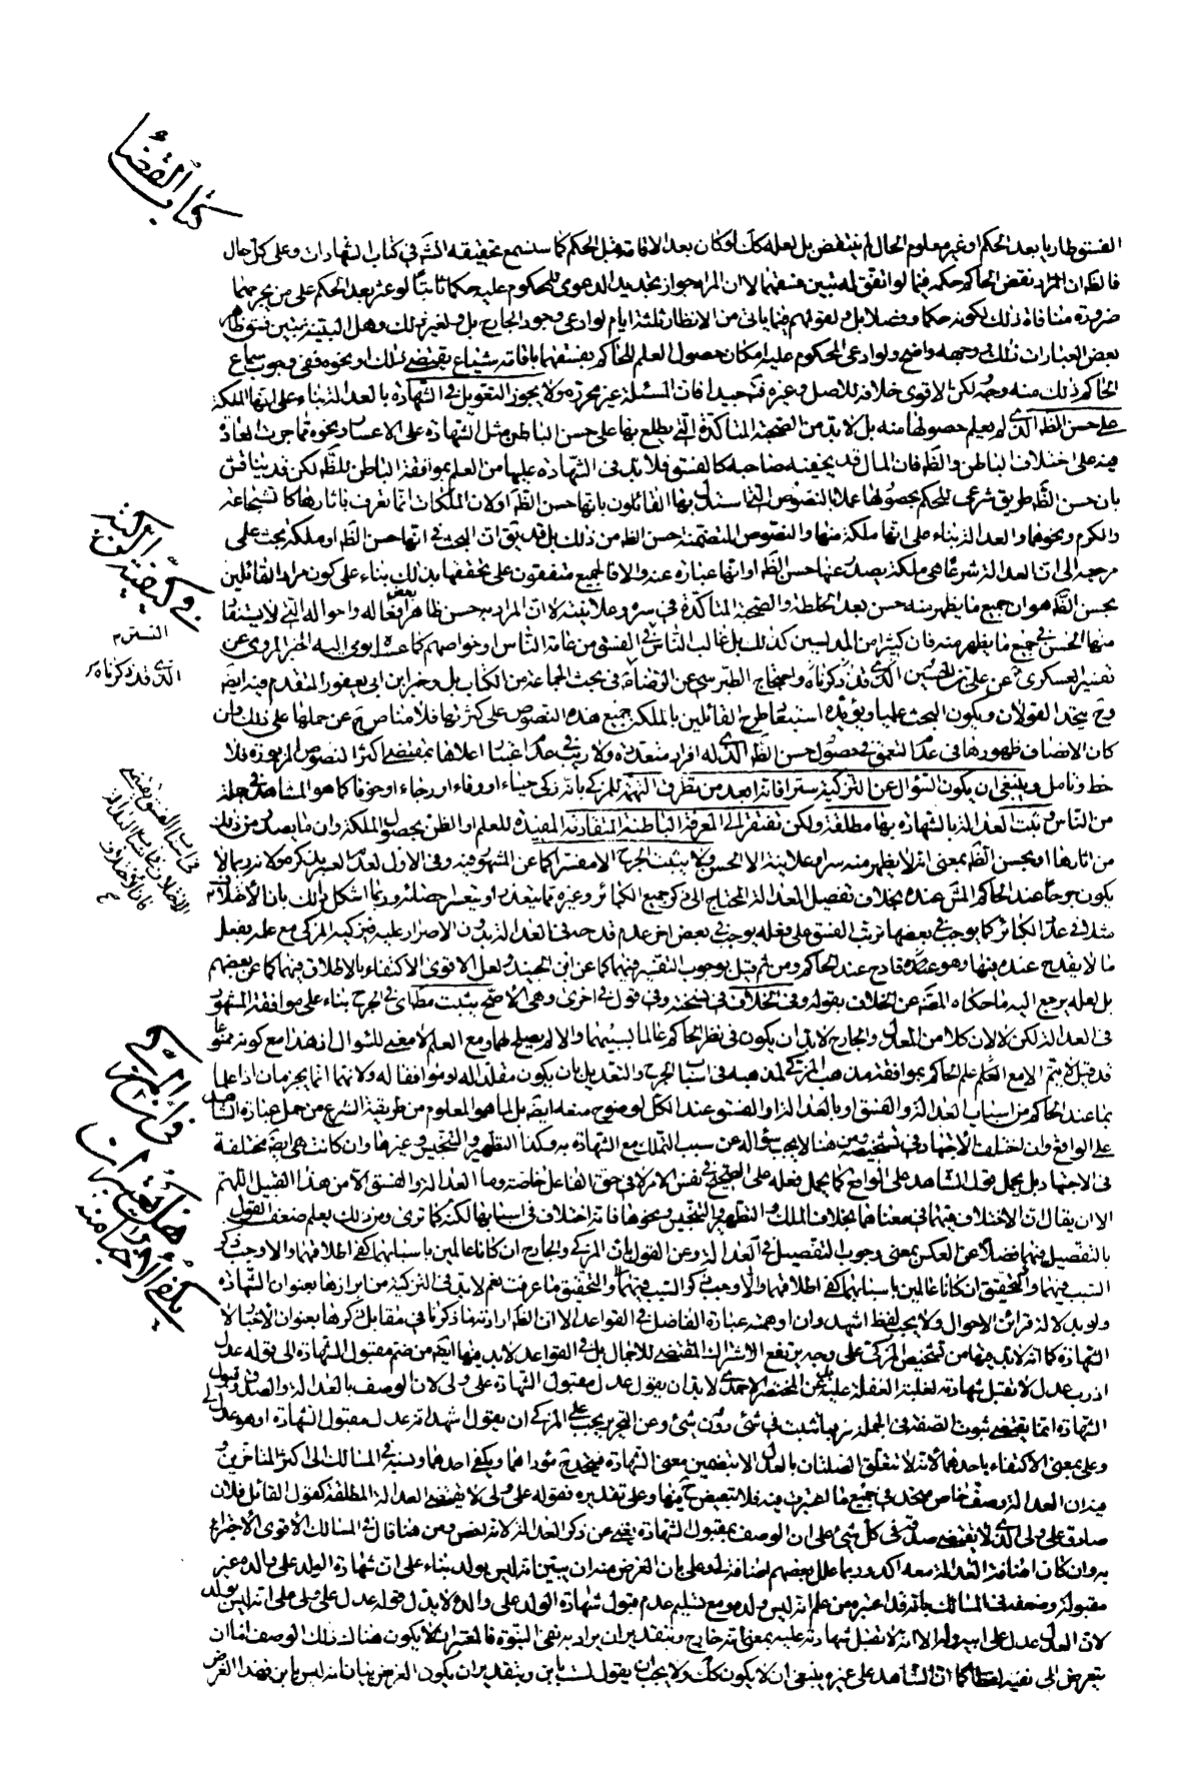 كتاب القضاء
الفسق طاريا بعد الحكم او غير معلوم الحال لم ينتقض بل لعله كك لو كان بعد الاقامة قبل الحكم كما ستسمع تحقيقه انش في كتاب الشهادات وعلى كل حال
فالظ ان المراد نقض الحاكم حكمه فيما لو اتفق له تبين فسقهما لا ان المراد جواز تجديد الدعوى للمحكوم عليه حكما ثابتا لو عثر بعد الحكم على من يجرحهما
ضرورة منافاة ذلك لكونه حكما وفصلا بل ولقولهم فيما ياتى من الانظار ثلثة ايام لو ادعى وجود الجارح بل ولغير ذلك وهل البينة تبين فسق ظاهر
بعض العبارات ذلك وجهه واضح ولو ادعى المحكوم عليه امكان حصول العلم للحاكم بفسقهما باقامة شياع يقتضى ذلك او نحوه ففى وجوب سماع
الحاكم ذلك منه وجه لكن الاقوى خلافه للاصل وغيره فت جيدا فان المسئلة غير محررة ولا يجوز التعويل في الشهادة بالعدالة بناء على انها الملكة
على حسن الظاهر الذى لم يعلم حصولها منه بل لابد من الصحبة المتاكدة التى يطلع بها على حسن الباطن مثل الشهادة على الاعسار ونحوه مما جرت العادة
فيه على اختلاف الباطن والظ فان المال قد يخفيه صاحبه كالفسق فلابد فى الشهادة عليها من العلم بموافقة الباطن للظ لكن قد يناقش
بان حسن الظ طريق شرعى للحكم بحصولها عملا بالنصوص التى استدل بها القائلون بانها حسن الظ اولان الملكات انما تعرف باثارها كالشجاعة
والكرم ونحوهما والعدالة بناء على انها ملكة منها والنصوص المتضمنة حسن الظ من ذلك بل قد يق ان البحث في انها حسن الظ او ملكة بحث على
مرجعه الى ان العدالة شرعا هى ملكة يصدر عنها حسن الظ او انها عبارة عنه والا فالجميع متفقون على تحققها بذلك بناء على كون مراد القائلين
بحسن الظ هو ان جميع ما يظهر منه حسن بعد الخلطة والصحبة المتاكدة في سره وعلانيته لا ان المراد به حسن ظاهر بعض افعاله واحواله التى لا يستفاد
منها الحسن في جميع ما يظهر منه فان كثيرا من المدلسين كذلك بل غالب الناس في الفسق من عامة الناس او خواصهم كما عساه يومى اليه الخبر المروى عن
تفسير العسكرى عن على بن الحسين الذى قد ذكرناه واحتجاج الطبرسى عن الرضا في بحث الجماعة من الكتاب بل وخبر ابن ابي يعفور المتقدم فيه ايضا
وح يتحد القولان ويكون البحث علميا ويؤيده استبعاد طرح القائلين بالملكة جميع هذه النصوص على كثرتها فلا مناص لهم عن حملها على ذلك وان
كان الانصاف ظهورها في عدم التعمق في حصول حسن الظ الذى له افراد متعددة ولا ريب في عدم اعتبار اعلاها بمقتضى اكثر النصوص المزبورة فلا
حظ وتامل وينبغى ان يكون السؤال عن التزكية سرا فانه ابعد من تطرق التهمة للمزكى بانه زكى حياء او وفاء او رجاء او خوفا كما هو المشاهد في جملة
من الناس وتثبت العدالة بالشهادة بها مطلقة ولكن تفتقر الى المعرفة الباطنة المتقادمة المفيدة للعلم او الظن بحصول الملكة وان ما يصدر من ذلك
من اثارها او بحسن الظ بمعنى انه لا يظهر منه سرا وعلانية الا الحسن ولا يثبت الجرح الا مفسرا كما عن المشهور فيه وفى الاول لعدم العبرة بذكره لانه ربما لا
يكون جرحا عند الحاكم المشهود عنده بخلاف تفصيل العدالة المحتاج الى ذكر جميع الكبائر وغيره مما يتعذر او يتعسر حصره وربما اشكل ذلك بان الاختلاف
في عدد الكبائر كما يوجب في بعضها ترتب الفسق على فعله يوجب في بعض اخر عدم قدحه في العدالة بدون الاصرار عليه فيزكيه المزكى مع علمه بفعل
ما لا يقدح عنده فيها وهو عنده قادح عند الحاكم ومن ثم قيل بوجوب التفسير فيهما كما عن ابن الجنيد ولعل الاقوى الاكتفاء بالاطلاق فيهما كما عن بعضهم
بل لعله يرجع اليه ما حكاه المص عن الخلاف بقوله وفى الخلاف في نسخة وفى قول في اخرى وهى الاصح يثبت مطلقا اى في الجرح بناء على موافقة المشهور
فى العدالة لكن لا لان كلا من المعدل والجارح لابد ان يكون في نظر الحاكم عالما بسببهما والا لم يصلح لهما ومع العلم لا معنى للسؤال اذ هذا مع كونه ممنوعا
قد قيل لا يتم الا مع العلم علم الحاكم بموافقة مذهب المزكى لمذهبه في اسباب الجرح والتعديل بان يكون مقلدا له او موافقا له ولانهما انما يجرحان اذا علما
بما عند الحاكم من اسباب العدالة والفسق او بالعدالة او الفسق عند الكل لوضوح منعه ايضا بل لما هو المعلوم من طريقة الشرع من حمل عبارة الشاهد
على الواقع وان اختلف الاجتهاد في تشخيصه ومن هنا لا يجب سؤاله عن سبب التملك مع الشهادة به وكذا التطهير والتنجيس وغيرها وان كانت هى ايضا مختلفة
فى الاجتهاد بل يحمل قول الشاهد على الواقع كما يحمل فعله على الصحيح في نفس الامر لا في حق الفاعل خاصة وما العدالة والفسق الا من هذا القبيل اللهم
الا ان يقال ان الاختلاف فيهما في معناهما بخلاف الملك والتطهير والتنجيس ونحوها فانه اختلاف فى اسبابها لكنه كما ترى ومن ذلك يعلم ضعف القول
بالتفصيل فيهما فضلا عن العكس بمعنى وجوب التفصيل في العدالة وعن القول بان المزكى والجارح ان كانا عالمين باسبابهما كفى اطلاقهما والا وجب ذكر
السبب فيهما والتحقيق ان كانا عالمين باسبابهما كفى اطلاقهما والا وجب ذكر السبب فيهما والتحقيق ما عرفت نعم لابد فى التزكية من ابرازها بعنوان الشهادة
ولو بدلالة قرائن الاحوال ولا يجب لفظ اشهد وان اوهمته عبارة الفاضل في القواعد الا ان الظ ارادتها ما ذكرنا في مقابل ذكرها بعنوان الاخبار لا
الشهادة كما انه لابد فيها من تشخيص المزكى على وجه يرتفع الاشتراك المقتضى للاجمال بل في القواعد لابد فيها ايضا من ضم مقبول الشهادة الى قوله عدل
اذ رب عدل لا تقبل شهادته لغلبة الغفلة عليه بل عن المختصر الاحمدى لابد ان يقول عدل مقبول الشهادة على ولى لان الوصف بالعدالة والصدق وقبول
الشهادة انما يقتضى ثبوت الصفة في الجملة فربما تثبت في شئ دون شئ وعن التحرير يجب على المزكى ان يقول اشهد انه عدل مقبول الشهادة او هو عدل لى
وعلى بمعنى الاكتفاء باحدهما لانه لا تتعلق الصلتان بالعدل الا بتضمين معنى الشهادة فيتحد ح مؤداهما ويكفى احدهما ونسبه في المسالك الى اكثر المتاخرين و
فيه ان العدالة وصف خاص متحد في جميع ما تعتبر فيه فلا تبعيض ح فيها وعلى تقديره فقوله على ولى لا يقتضى العدالة المطلقة كقول القائل فلان
صادق على ولى الذى لا يقتضى صدقه في كل شئ على ان الوصف بمقبول الشهادة يغنى عن ذكر العدالة لانه اخص ومن هنا قال في المسالك الاقوى الاجتزاء
به وان كان اضافة العدالة معه اكد وربما علل بعضهم اضافة لى وعلى بان الغرض منه ان يبين انه ليس بولد بناء على ان شهادة الولد على والده غير
مقبولة وضعفه في المسالك بانه قد اعتبره من علم انه ليس ولده ومع تسليم عدم قبول شهادة الولد على والده لا يدل قوله عدل على ولى على انه ليس بولد
لان العدل عدل على ابيه وله الا انه لا تقبل شهادته عليه بمعنى انه خارج وبتقدير ان يراد به نفى البنوة فالمعتبر ان لا يكون هناك ذلك الوصف اما ان
يتعرض الى نفيه لفظا كما ان الشاهد على غيره ينبغى ان لا يكون كك ولا يجب ان يقول لست بابن وبتقدير ان يكون الغرض بيان انه ليس بابن فهذا الغرض
في كيفية التزكية
التستر م
الذى قد ذكرناه ر
في اسباب الفسق يقتضى
الاختلاف في اسباب العدالة
فان الاختلاف
في ان المزكى
هل يعتبر ان
يكفى الاوراد